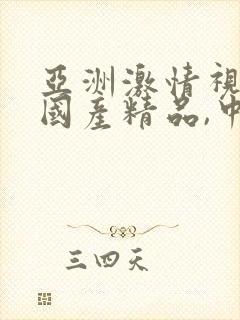 亞洲激情視
國產精品,中
三四天